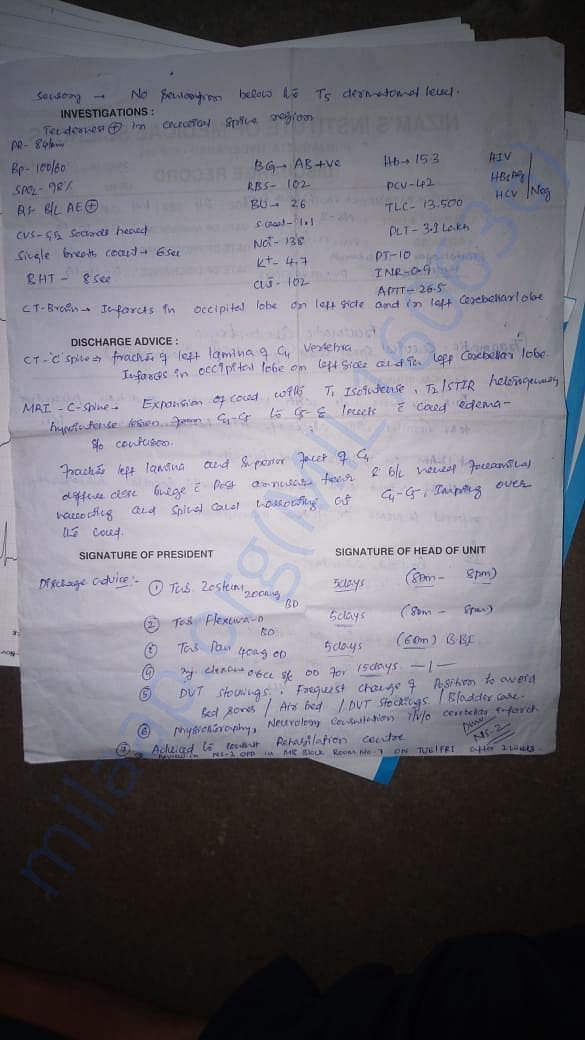 Sensory → No sensation below the T5 dermatomal level.
INVESTIGATIONS :
Tenderness ⊕ in cervical spine region
PR- 84/min
BP- 100/60
SPO2- 98%
RS- B/L AE ⊕
CVS- S1S2 sounds heard
Single breath count → 6sec
BHT - 8sec
BG → AB +ve
RBS - 102
BU → 26
S creat - 1.1
Na+ - 138
K+ - 4.7
Cl- - 102
Hb → 15.3
PCV - 42
TLC - 13.500
PLT - 3.1 Lakh
PT - 10
INR - 0.9
APTT - 26.5
HIV
HBsAg
HCV
Neg
CT-Brain → Infarcts in occipital lobe on left side and in left cerebellar lobe
DISCHARGE ADVICE :
CT-'C'spine → fracture of left lamina of C4 vertebra
Infarcts in occipital lobe on left side and in left cerebellar lobe.
MRI - C-Spine → Expansion of cord with T1 Isointense, T2/STIR heterogenously
hyperintense from C4-C5 to levels c cord edema-
s/o contusion.
Fracture left lamina and superior facet of C4
diffuse disc bulge c Post annular tear & b/l neural foraminal
narrowing and spinal canal narrowing at C4-C5, Imping over
the cord.
SIGNATURE OF PRESIDENT
SIGNATURE OF HEAD OF UNIT
Discharge advice:-
① Tab. Zostum 200mg BD 5days (8am - 8pm)
② Tab Flexura-D BD 5days (8am - 8pm)
③ Tab Pan 40mg OD 5days (6am) B.BF
④ Inj clexane 0.6cc s/c OD for 15days.
⑤ DVT stockings, Frequent change of Position to avoid
Bed sores / Air bed / DVT stockings / Bladder care.
⑥ physiotherapy, Neurology consultation i/v/o cerebellar infarct.
⑦ Adviced to consult Rehabilation centre
Review in NS-2 OPD in MB Block Room No-7 ON TUE/FRI after 2 weeks.
NS-2
milaap.org